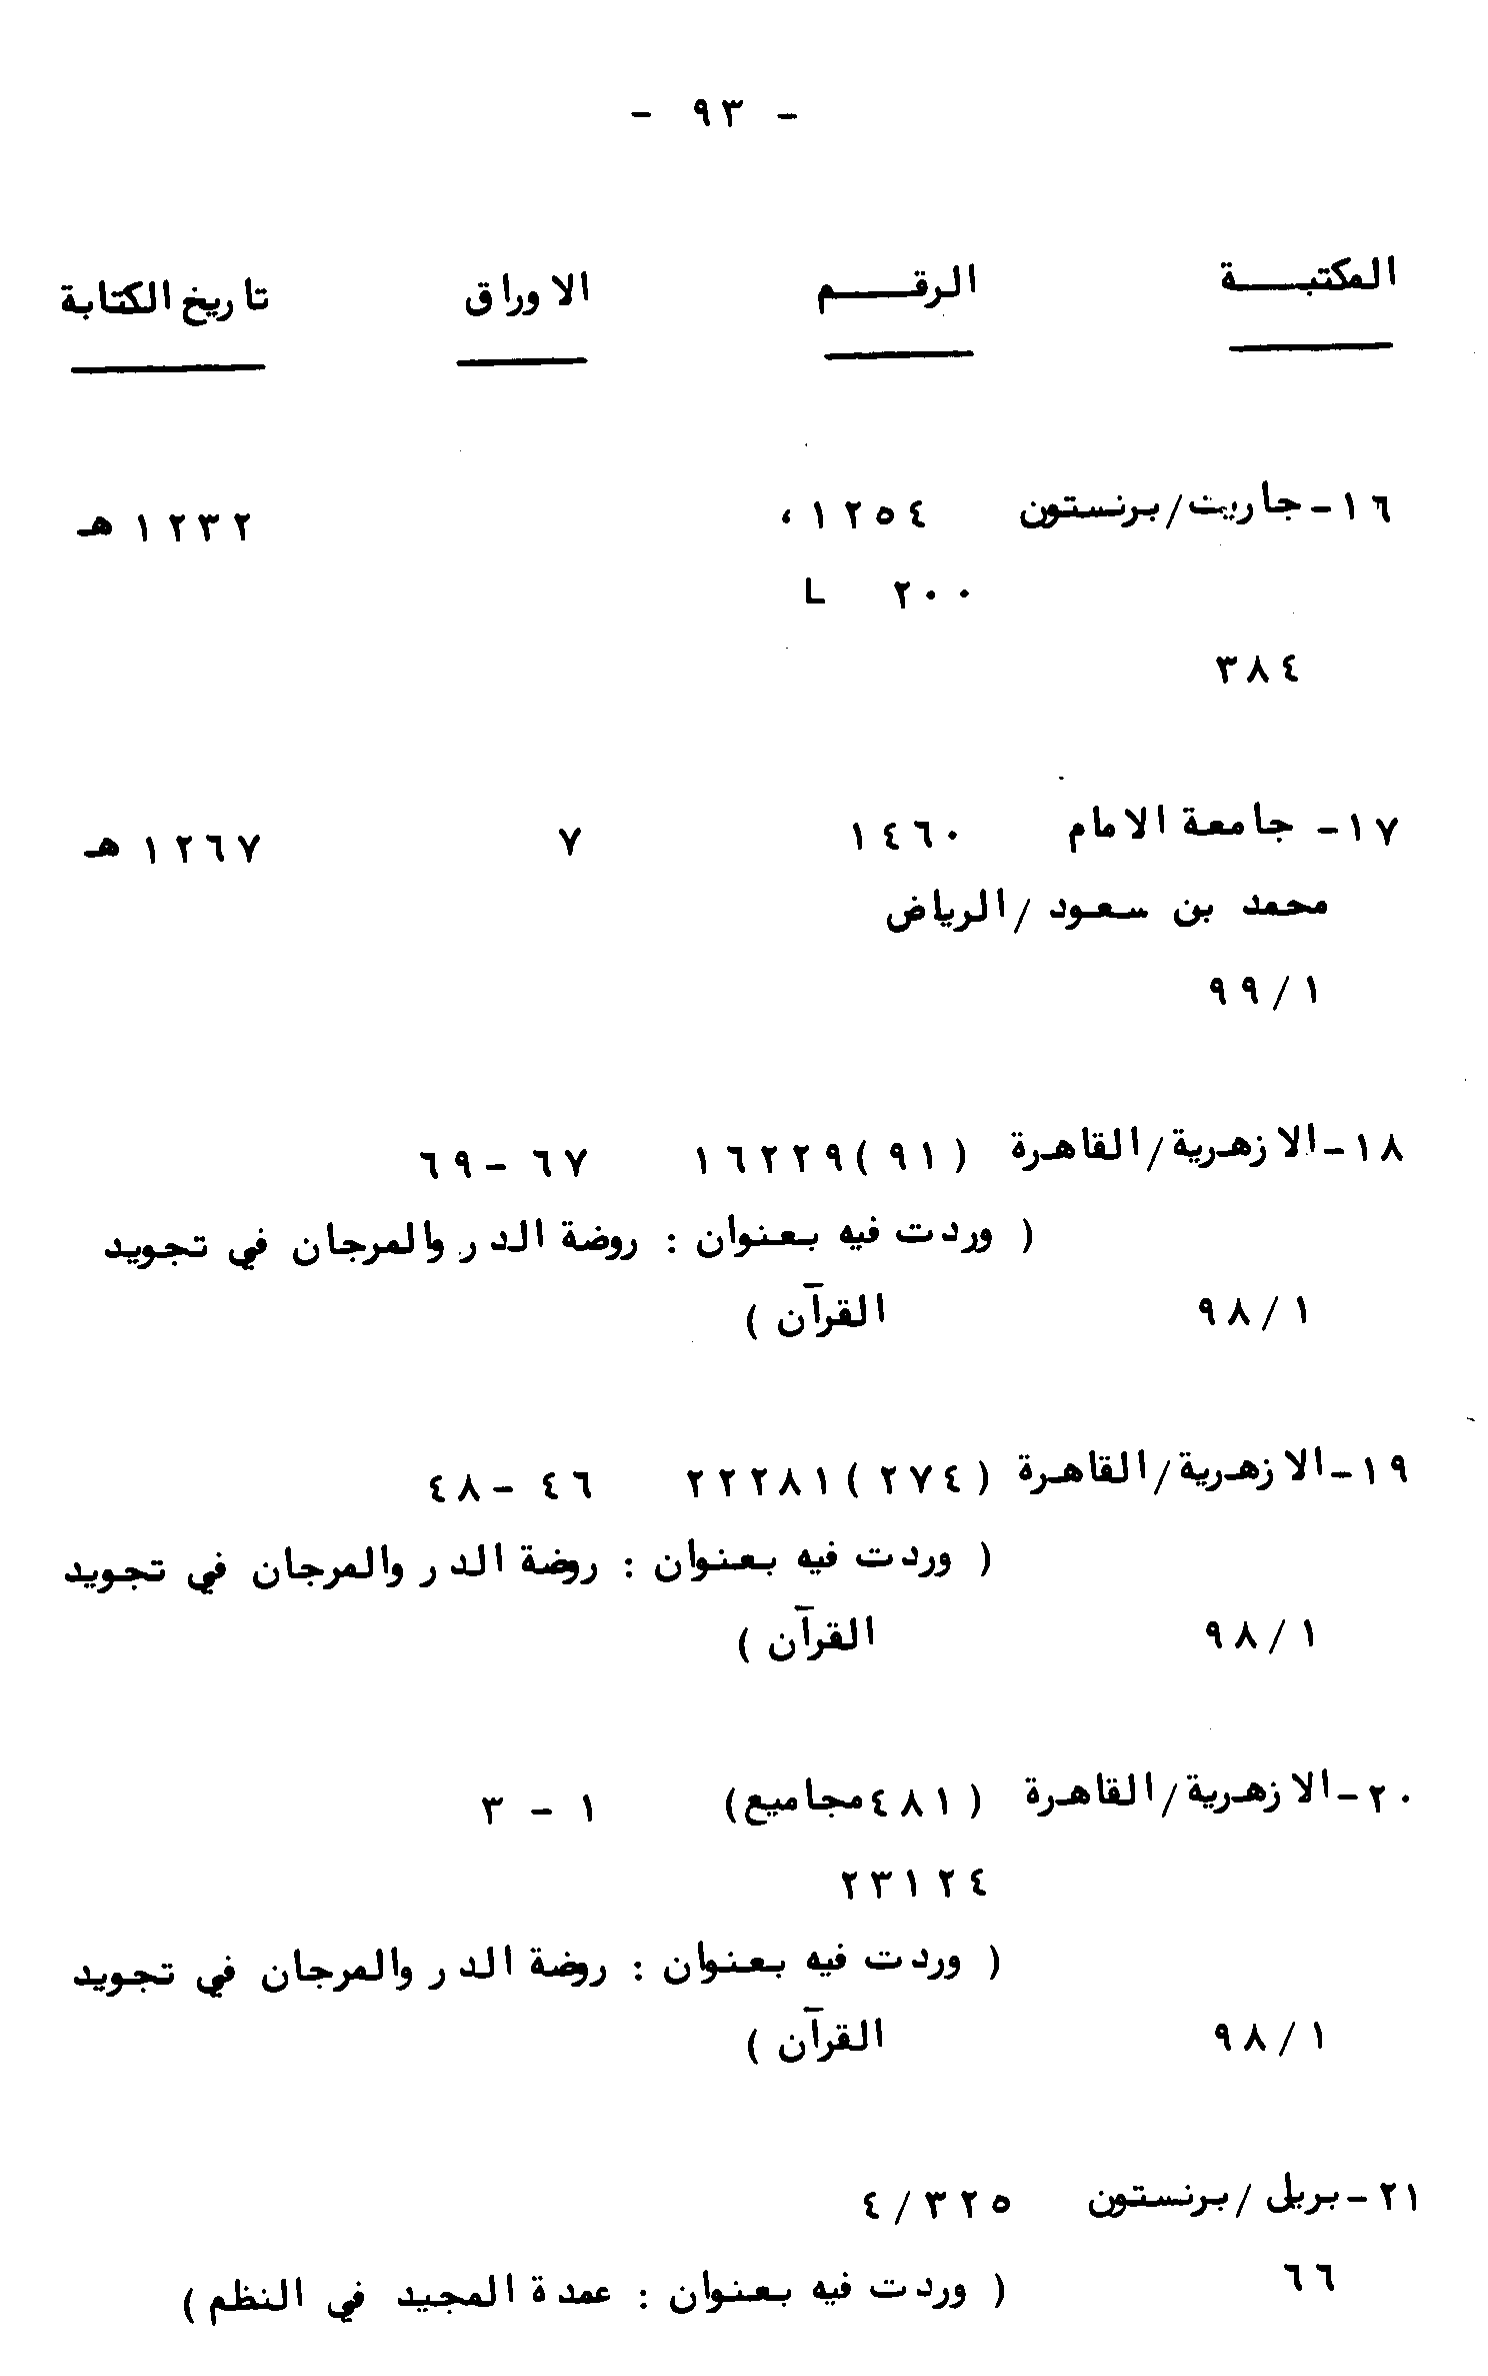 - ٩٣ -
المكتبـــــة الرقـــــم الاوراق تاريخ الكتابة
١٦- جاريت/برنستون ١٢٥٤ ، ١٢٣٢ هـ
٢٠٠ L
٣٨٤
١٧- جامعة الامام ١٤٦٠ ٧ ١٢٦٧ هـ
محمد بن سعود /الرياض
٩٩/١
١٨- الازهرية/القاهرة (٩١) ١٦٢٢٩ ٦٧ - ٦٩
( وردت فيه بعنوان : روضة الدر والمرجان في تجويد
٩٨/١ القرآن )
١٩- الازهرية/القاهرة (٢٧٤) ٢٢٢٨١ ٤٦ - ٤٨
( وردت فيه بعنوان : روضة الدر والمرجان في تجويد
٩٨/١ القرآن )
٢٠- الازهرية/القاهرة (٤٨١ مجاميع) ١ - ٣
٢٣١٢٤
( وردت فيه بعنوان : روضة الدر والمرجان في تجويد
٩٨/١ القرآن )
٢١- بريل /برنستون ٤/٣٢٥
٦٦ ( وردت فيه بعنوان : عمدة المجيد في النظم )